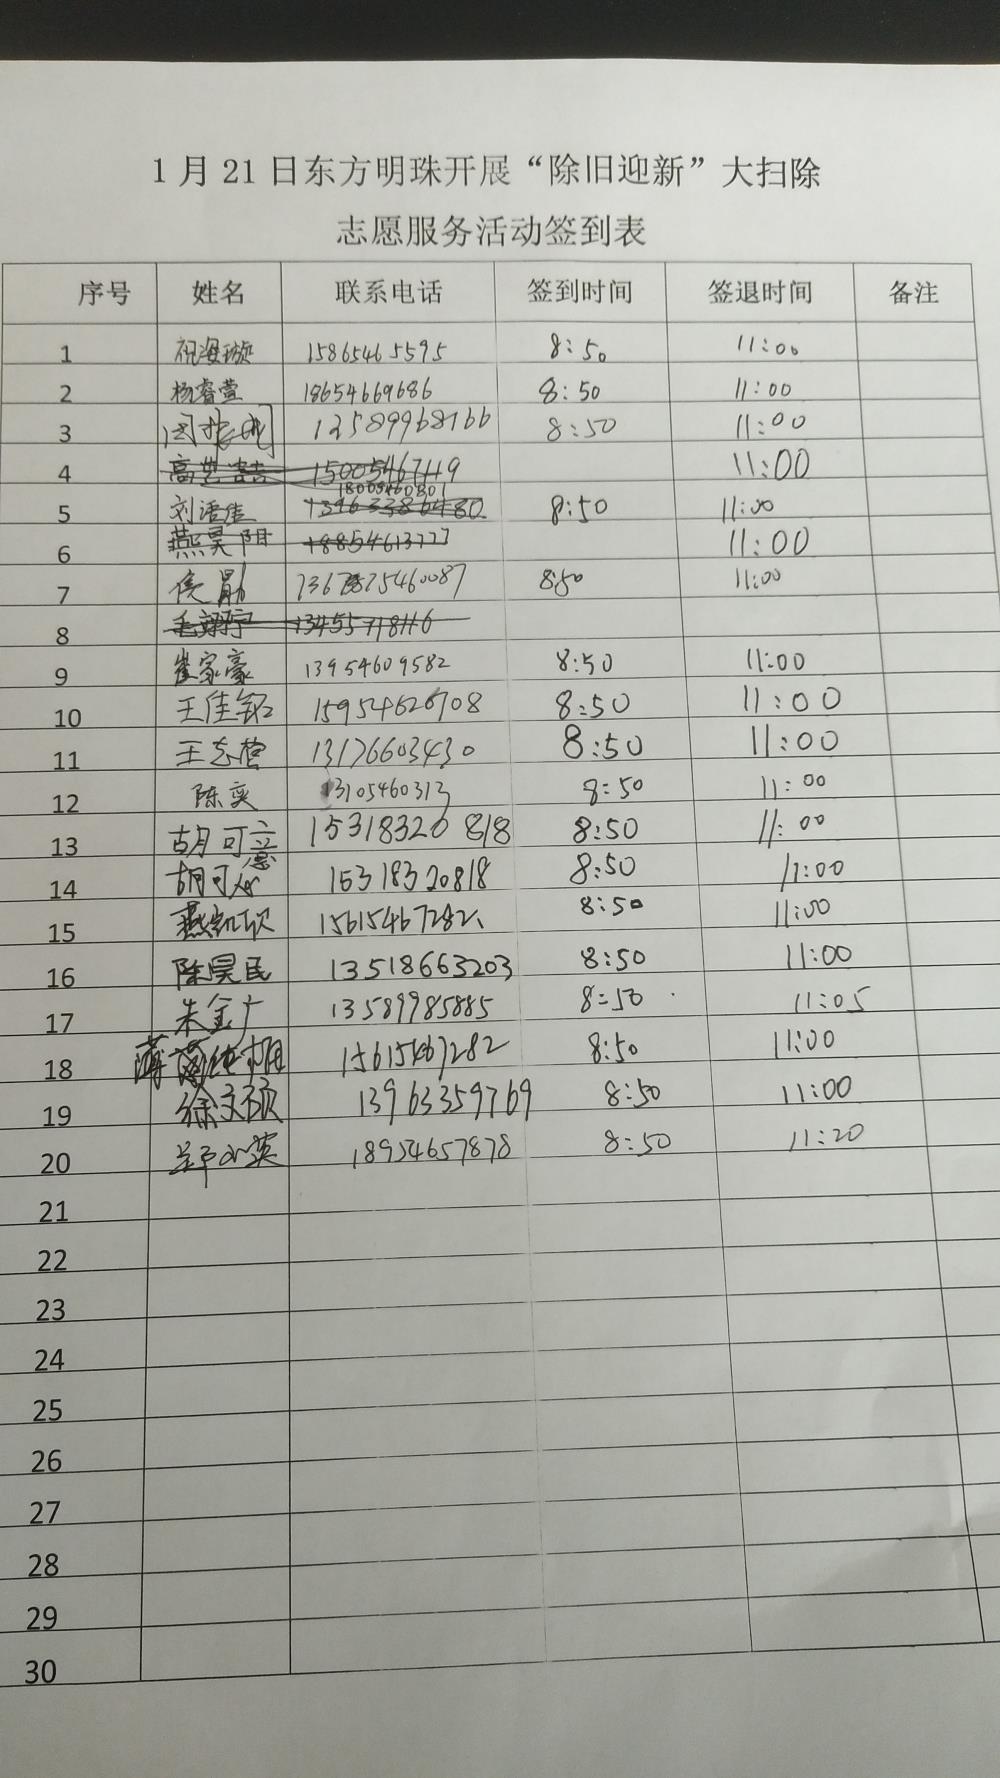 1月21日东方明珠开展“除旧迎新”大扫除
志愿服务活动签到表
序号 姓名 联系电话 签到时间 签退时间 备注
1 祝海璇 15865465595 8:50 11:00
2 杨睿萱 18654669686 8:50 11:00
3 12589968166 8:50 11:00
4 15005467119 11:00
18005460801
5 刘洁佳 13963386480 8:50 11:00
6 燕昊阳 18854613777 11:00
7 侯勋 8:50 11:00
8 13455718116
9 崔家豪 13954609582 8:50 11:00
10 王佳铭 15954626708 8:50 11:00
11 王志营 13176603430 8:50 11:00
12 陈奕 13105460313 8:50 11:00
13 胡可立 15318320818 8:50 11:00
14 胡可愈 15318320818 8:50 11:00
15 燕凯欣 15615467282 8:50 11:00
16 陈昊民 13518663203 8:50 11:00
17 朱金广 13589985885 8:50 11:05
18 薄 纯 15615467282 8:50 11:00
19 徐文硕 13963359769 8:50 11:00
20 18954657878 8:50 11:20
21
22
23
24
25
26
27
28
29
30